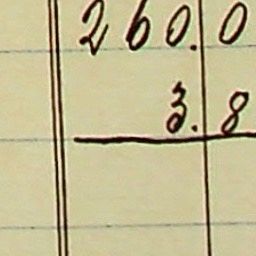 260.0
3.8